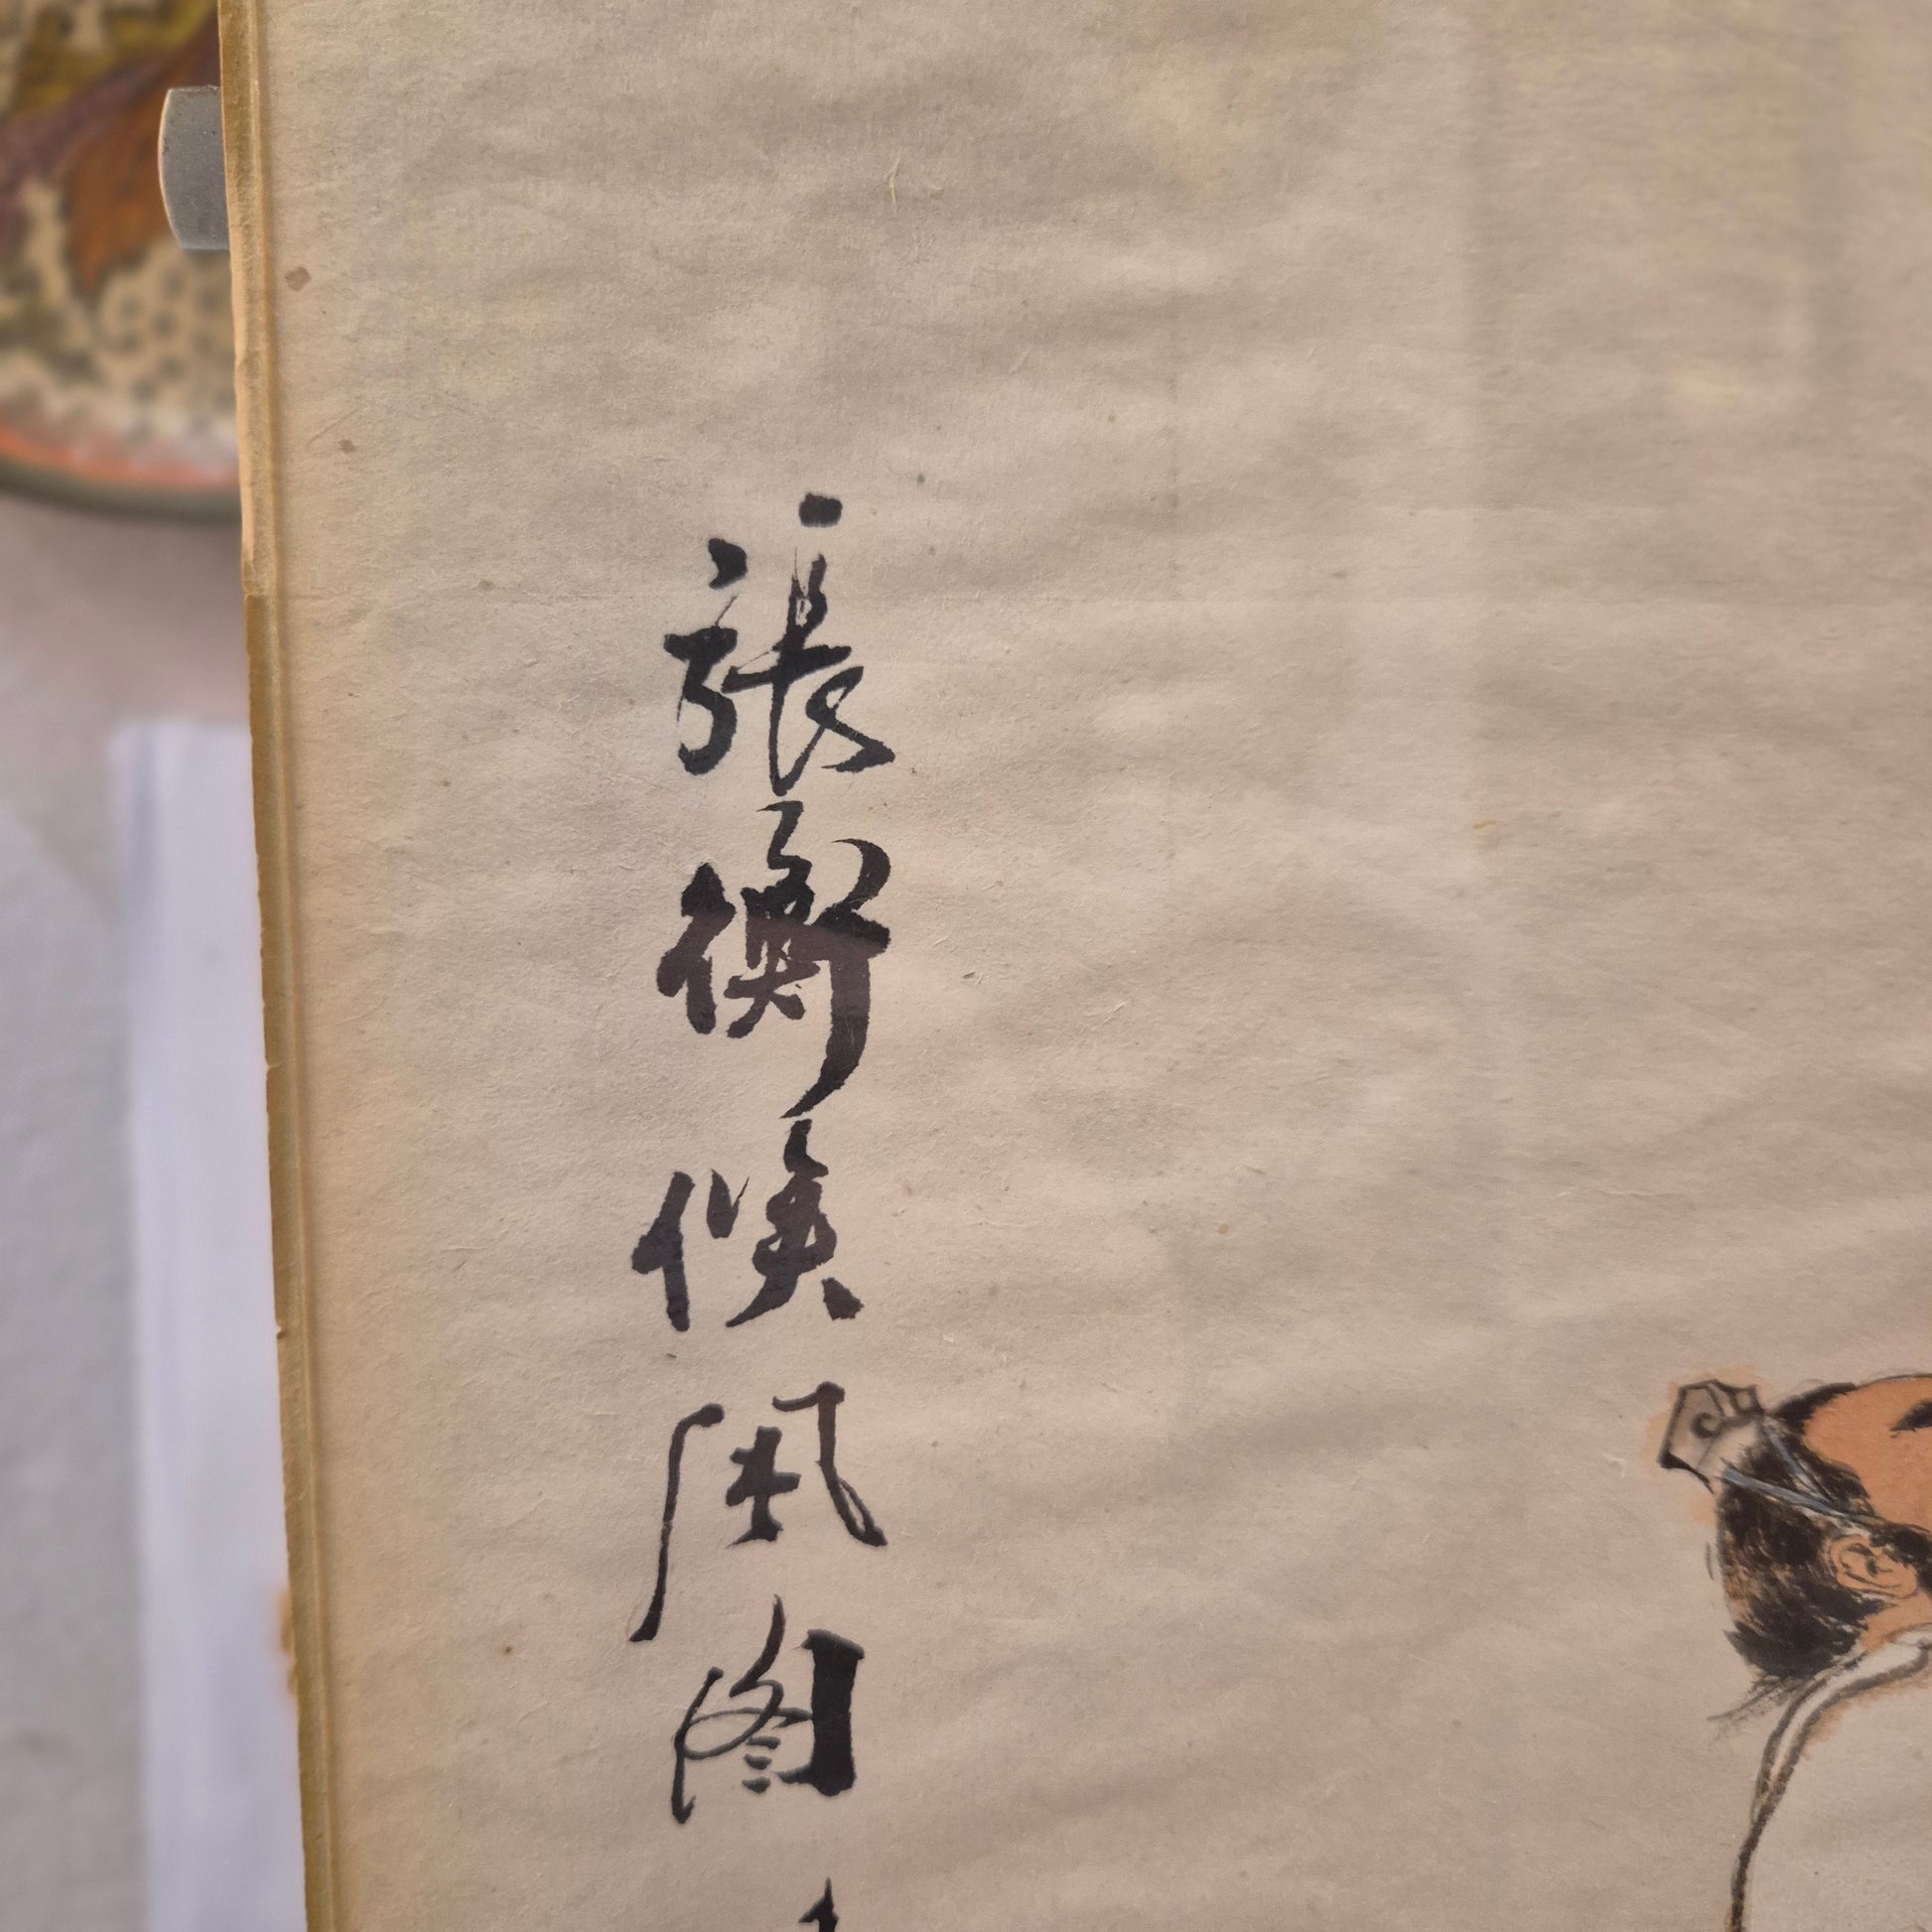 張衡候風图